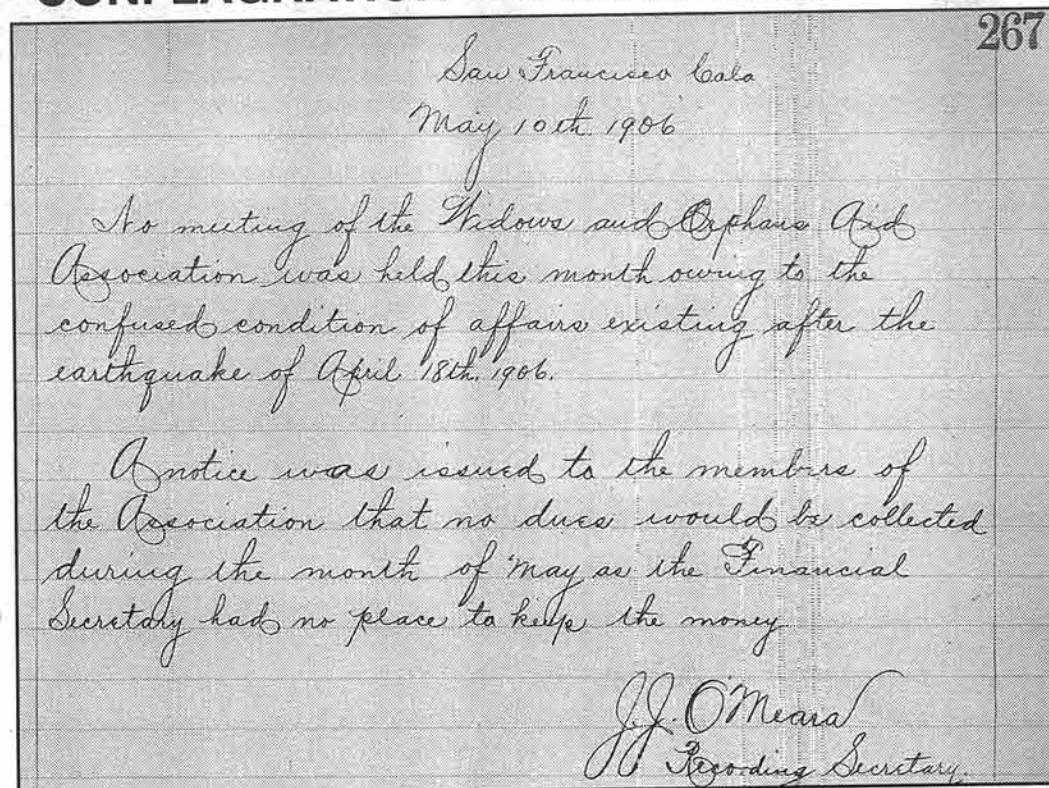 267
San Francisco Cala
May 10th 1906
No meeting of the Widows and Orphans Aid
Association was held this month owing to the
confused condition of affairs existing after the
earthquake of April 18th, 1906.
A notice was issued to the members of
the Association that no dues would be collected
during the month of May as the Financial
Secretary had no place to keep the money
J.J. O'Meara
Recording Secretary.